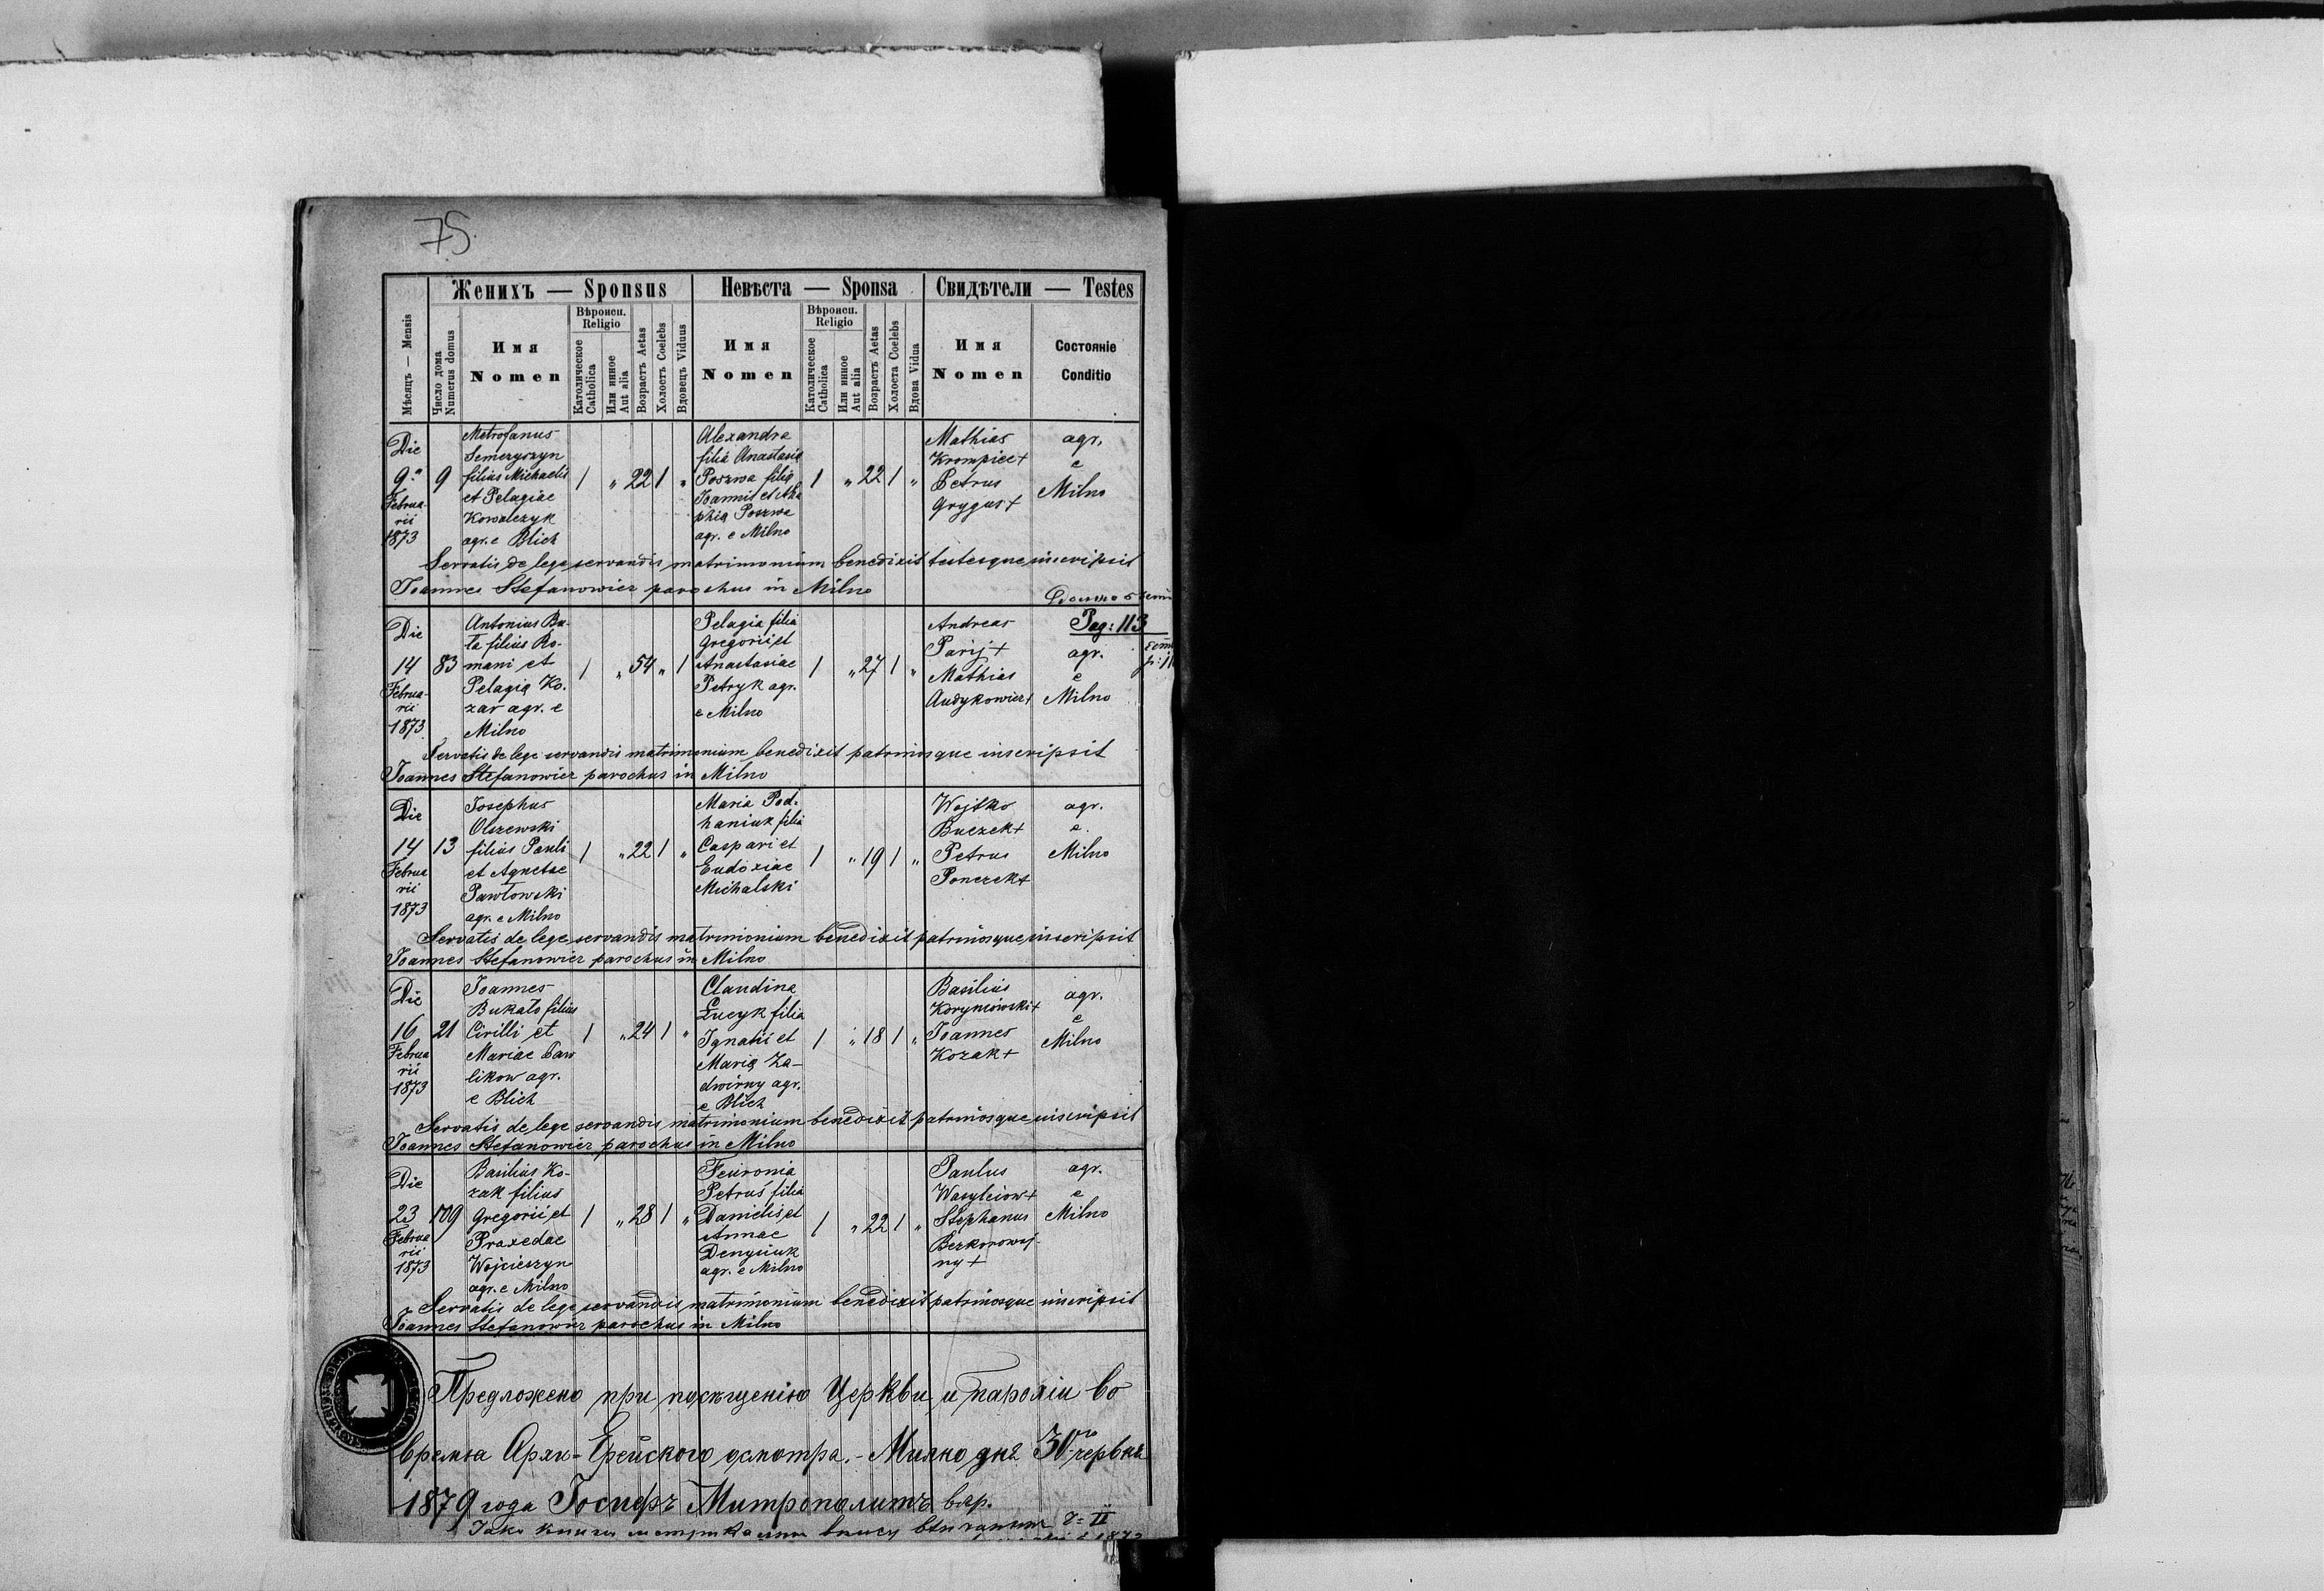 75.
Женихъ — Sponsus
Невѣста — Sponsa
Свидѣтели — Testes
Мѣсяцъ — Mensis
Число дома
Numerus domus
Имя
Nomen
Вѣроисп.
Religio
Католическое
Catholica
Или инное
Aut alia
Возрастъ Aetas
Холостъ Coelebs
Вдовецъ Viduus
Имя
Nomen
Вѣроисп.
Religio
Католическое
Catholica
Или инное
Aut alia
Возрастъ Aetas
Холоста Coelebs
Вдова Vidua
Имя
Nomen
Состояніе
Conditio
Die
9a
Februa-
rii
1873
9
Metrofanus
Semeryszyn
filius Michaelis
et Pelagiae
Kowalczyk
agr. e Blich
1 „ 22 1 „
Alexandra
filia Anastasia
Poszwa filia
Joannis et Aha
phia Poszwa
agr. e Milno
1 „ 22 1 „
Mathias
Krompiec +
Petrus
Grygus +
agr.
e
Milno
Servatis de lege servandis matrimonium benedixit testesque inscripsit
Joannes Stefanowicz parochus in Milno
Die
14
Februa-
rii
1873
83
Antonius Bu-
ta filius Ro-
mani et
Pelagia Ko-
zar agr. e
Milno
1 „ 54 „ 1
Pelagia filia
Gregorii et
Anastasiae
Petryk agr.
e Milno
1 „ 27 1 „
Andreas
Parij +
Mathias
Audykowicz +
Pag: 113
agr.
e
Milno
Servatis de lege servandis matrimonium benedixit patrinosque inscripsit
Joannes Stefanowicz parochus in Milno
Die
14
Februa
rii
1873
13
Josephus
Olszewski
filius Pauli
et Agnetae
Pawłowski
agr. e Milno
1 „ 22 1 „
Maria Pod-
haniuk filia
Caspari et
Eudoxiae
Michalski
1 „ 19 1 „
Wojtko
Buczek +
Petrus
Ponczek +
agr.
e
Milno
Servatis de lege servandis matrimonium benedixit patrinosque inscripsit
Joannes Stefanowicz parochus in Milno
Die
16
Februa
rii
1873
21
Joannes
Bukało filius
Cirilli et
Mariae Paw
likow agr.
e Blich
1 „ 24 1 „
Claudina
Łucyk filia
Ignatii et
Maria Za-
dwirny agr.
e Blich
1 „ 18 1 „
Basilius
Koryniowski +
Joannes
Kozak +
agr.
e
Milno
Servatis de lege servandis matrimonium benedixit patrinosque inscripsit
Joannes Stefanowicz parochus in Milno
Die
23
Februa
rii
1873
109
Basilius Ko-
zak filius
Gregorii et
Praxedae
Wojcieszyn
agr. e Milno
1 „ 28 1 „
Feuronia
Petruś filia
Danielis et
Annae
Denysiuk
agr. e Milno
1 „ 22 1 „
Paulus
Wasylciow +
Stephanus
Bezkorowaj-
ny +
agr.
e
Milno
Servatis de lege servandis matrimonium benedixit patrinosque inscripsit
Joannes Stefanowicz parochus in Milno
Предложено при посѣщенію Церкви и парохіи во
времья Архи-Ерейского осмотра. - Милно дня 30го червня
1879 года Іосифъ Митрополитъ вър.